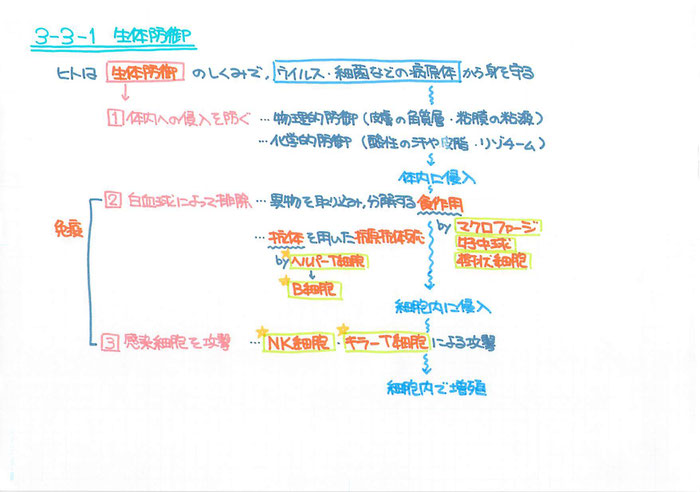 3-3-1 生体防御
ヒトは 生体防御 のしくみで, ウイルス・細菌などの病原体 から身を守る
1 体内への侵入を防ぐ … 物理的防御 (皮膚の角質層・粘膜の粘液)
… 化学的防御 (酸性の汗や皮脂・リゾチーム)
体内に侵入
免疫
2 白血球によって排除 … 異物を取り込み, 分解する食作用
by マクロファージ
好中球
樹状細胞
… 抗体を用いた抗原抗体反応
by ヘルパーT細胞
B細胞
細胞内に侵入
3 感染細胞を攻撃 … NK細胞・キラーT細胞による攻撃
細胞内で増殖